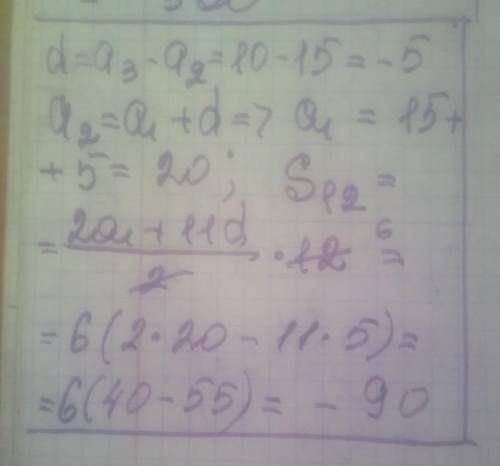 d=a₃-a₂=10-15=-5
a₂=a₁+d=> a₁ = 15+
+5= 20; S₁₂=
= (2a₁+11d)/2 · 12 ⁶ =
=6(2·20-11·5)=
=6(40-55)= -90